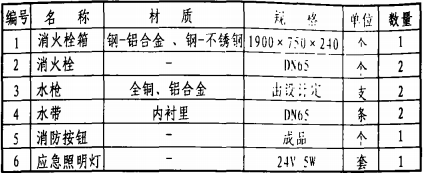 编号 名 称 材 质 规 格 单位 数量
1 消火栓箱 钢-铝合金、钢-不锈钢 1900×750×240 个 1
2 消火栓 - DN65 个 2
3 水枪 全铜、铝合金 由设计定 支 2
4 水带 内衬里 DN65 条 2
5 消防按钮 - 成品 个 1
6 应急照明灯 - 24V 5W 套 1